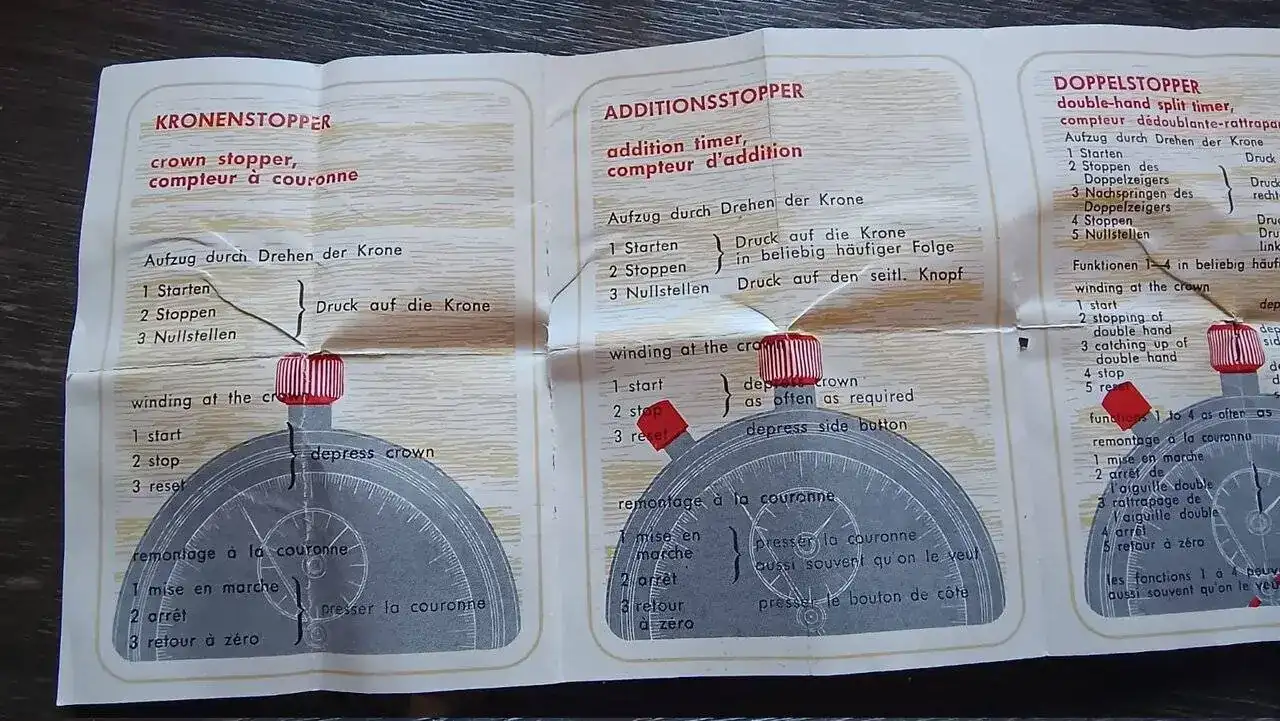 KRONENSTOPPER
crown stopper,
compteur à couronne
Aufzug durch Drehen der Krone
1 Starten
2 Stoppen
3 Nullstellen
Druck auf die Krone
winding at the crown
1 start
2 stop
3 reset
depress crown
remontage à la couronne
1 mise en marche
2 arrêt
3 retour à zéro
presser la couronne
ADDITIONSSTOPPER
addition timer,
compteur d'addition
Aufzug durch Drehen der Krone
1 Starten
2 Stoppen
Druck auf die Krone
in beliebig häufiger Folge
3 Nullstellen Druck auf den seitl. Knopf
winding at the crown
1 start
2 stop
depress crown
as often as required
3 reset depress side button
remontage à la couronne
1 mise en
marche
2 arrêt
presser la couronne
aussi souvent qu'on le veut
3 retour
à zéro
presser le bouton de côte
DOPPELSTOPPER
double-hand split timer,
compteur dédoublante-rattrapa
Aufzug durch Drehen der Krone
1 Starten Druck
2 Stoppen des
Doppelzeigers
3 Nachspringen des
Doppelzeigers
Druc
recht
4 Stoppen Dru
5 Nullstellen Dru
link
Funktionen 1–4 in beliebig häuf
winding at the crown
1 start dep
2 stopping of
double hand
3 catching up of
double hand
dep
sid
4 stop de
5 reset
functions 1 to 4 as often as
remontage à la couronne
1 mise en marche
2 arrêt de
l'aiguille double
3 rattrapage de
l'aiguille double
4 arrêt
5 retour à zéro
les fonctions 1 à 4 peuv
aussi souvent qu'on le veu